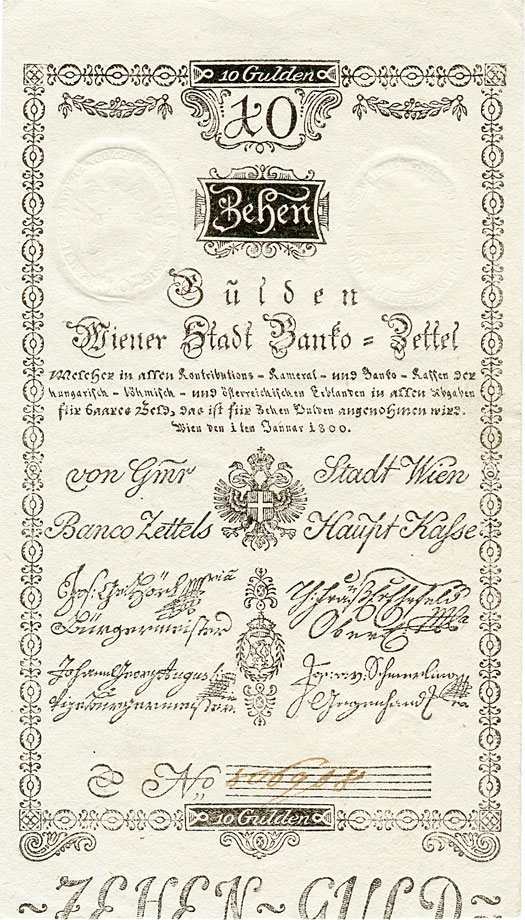 10 Gulden
10
Zehen
Gulden
Wiener Stadt Banko = Zettel
Welcher in allen Kontributions - Kameral - und Banko - Kassen der
hungarisch - böhmisch - und österreichischen Erblanden in allen Abgaben
für baares Geld, das ist für Zehen Gulden angenohmen wird.
Wien den 1ten Januar 1800.
von Gmr Stadt Wien
Banco Zettels Haupt Kasse
Jos.
Bürgermeister Ober
Johann Georg August Jos. v. Schmerling
Vizebürgermeister Gegenhand
No 106908
10 Gulden
~ZEHEN~GULD~